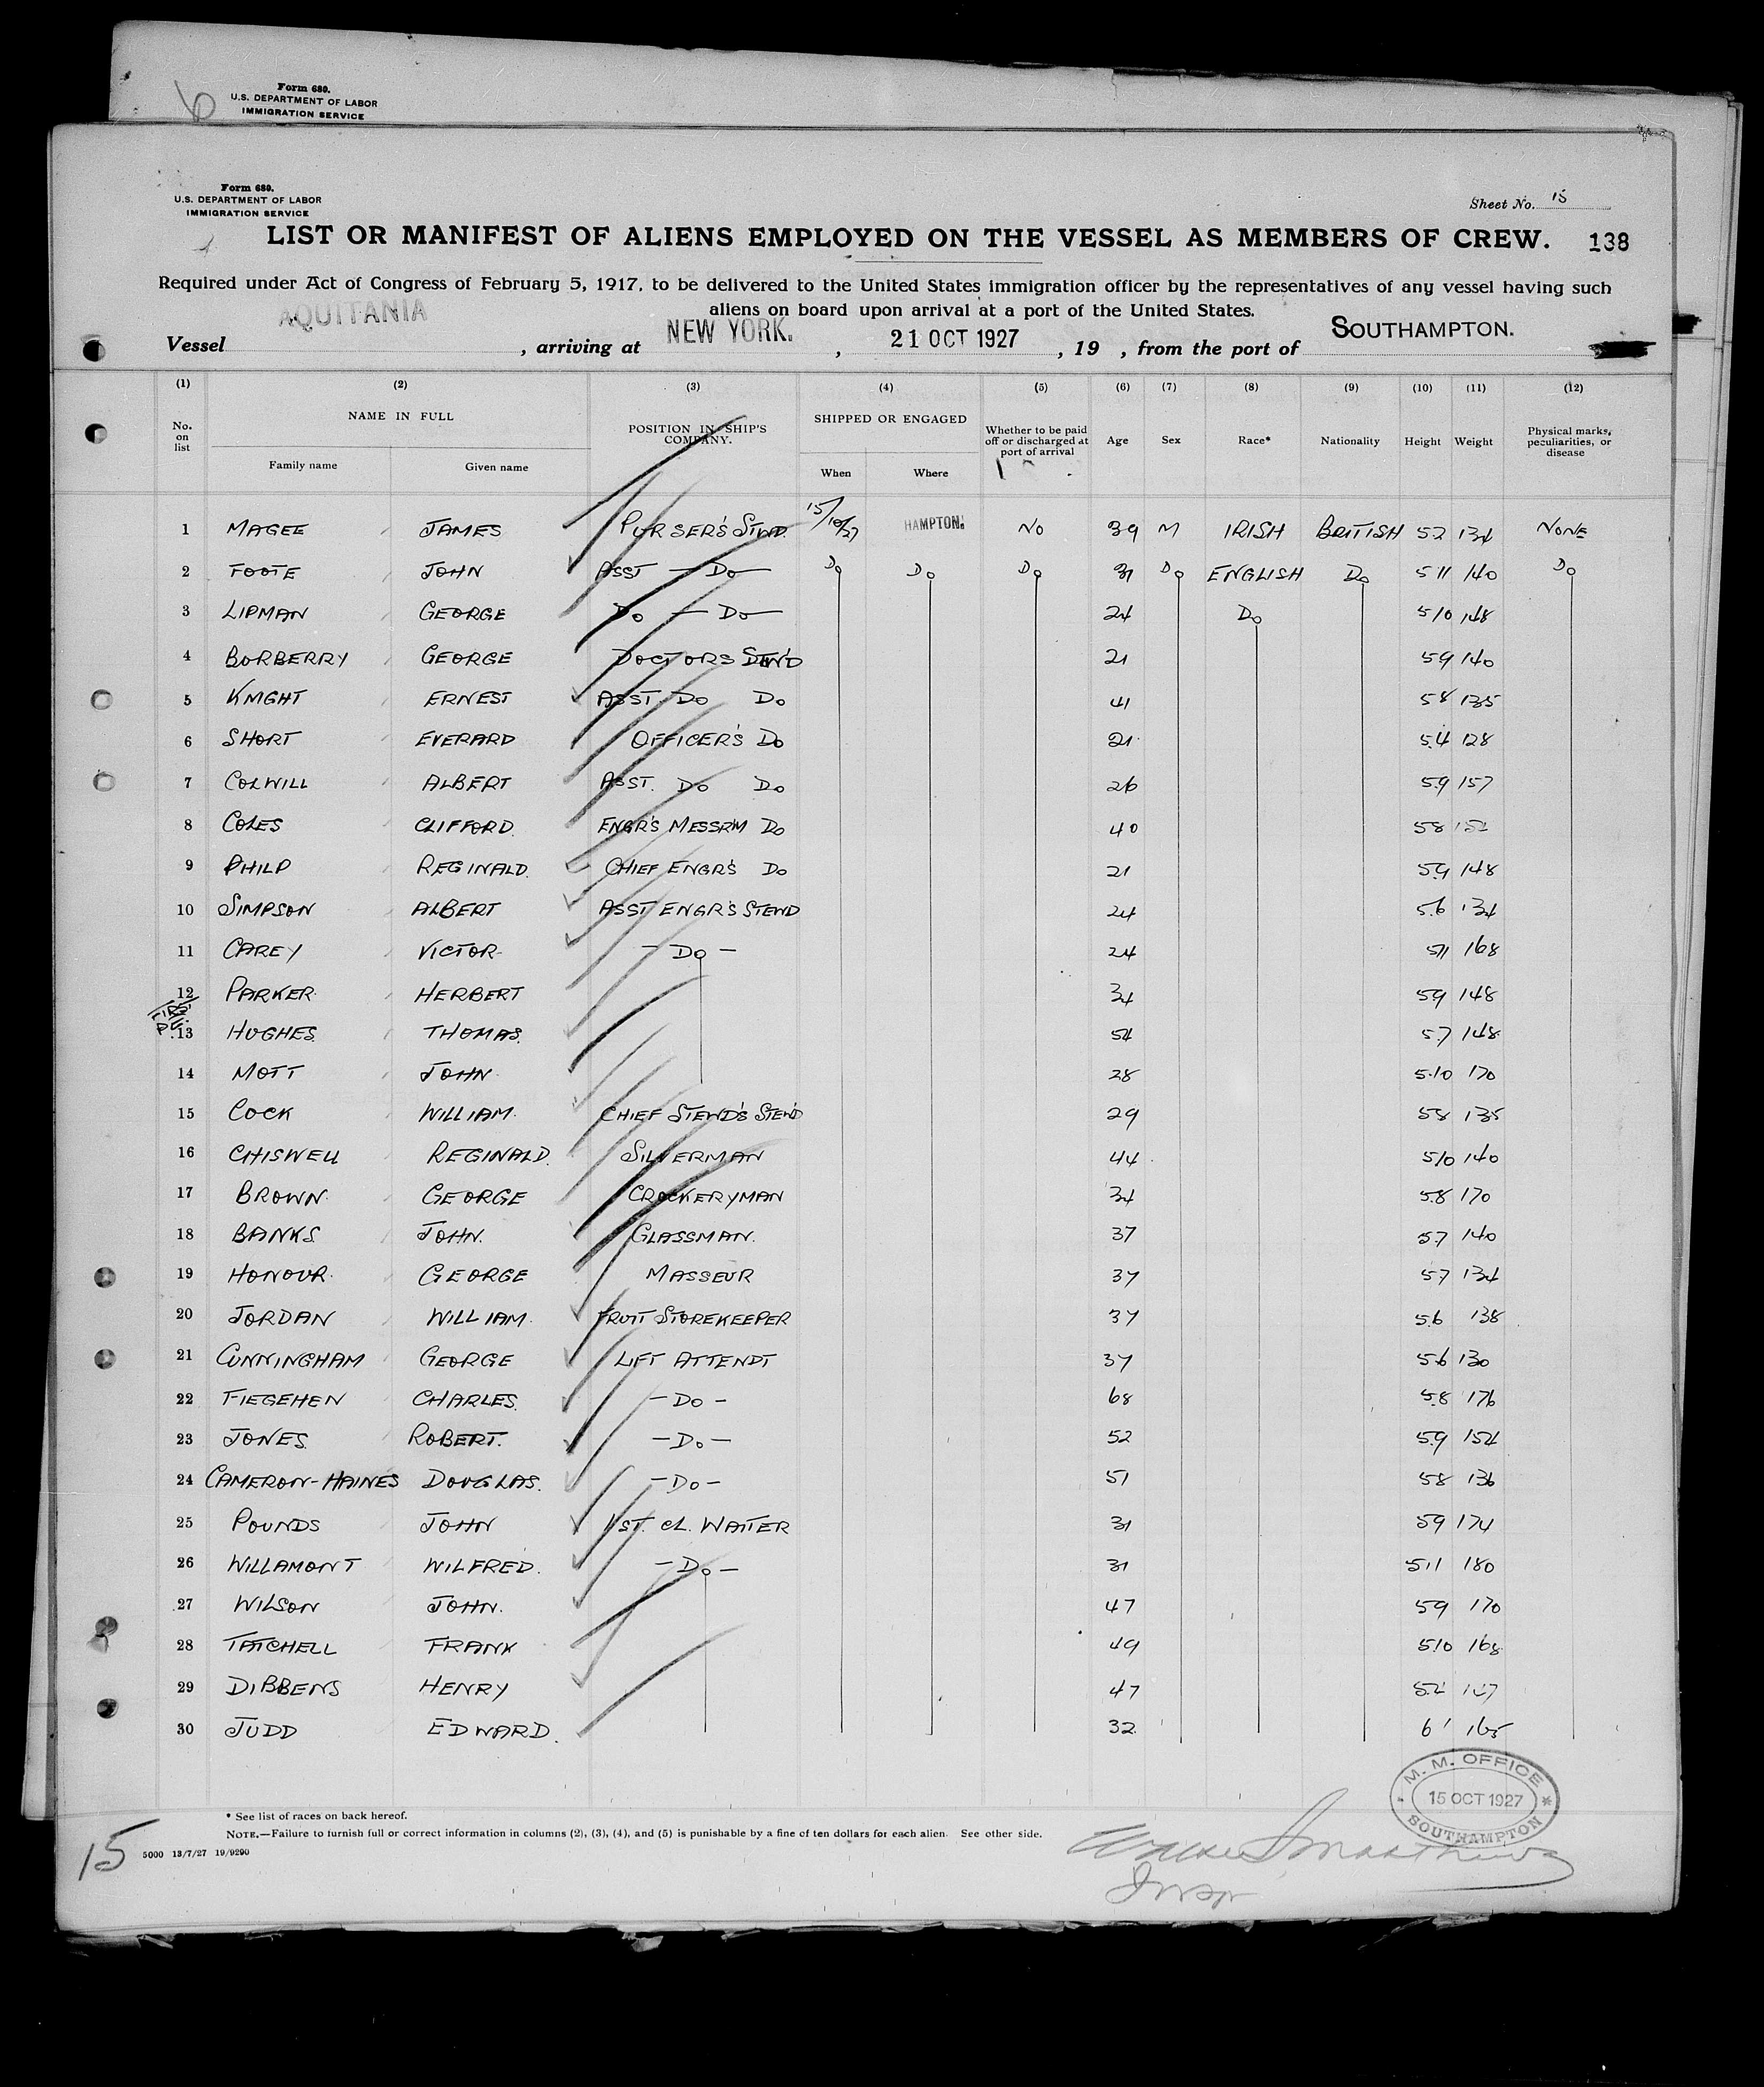 Form 680.
U.S. DEPARTMENT OF LABOR
IMMIGRATION SERVICE
Form 680.
U.S. DEPARTMENT OF LABOR
IMMIGRATION SERVICE
Sheet No. 15
LIST OR MANIFEST OF ALIENS EMPLOYED ON THE VESSEL AS MEMBERS OF CREW. 138
Required under Act of Congress of February 5, 1917, to be delivered to the United States immigration officer by the representatives of any vessel having such
aliens on board upon arrival at a port of the United States.
Vessel AQUITANIA, arriving at NEW YORK., 21 OCT 1927, 19 , from the port of SOUTHAMPTON.
(1) (2) (3) (4) (5) (6) (7) (8) (9) (10) (11) (12)
No. on list NAME IN FULL Family name Given name POSITION IN SHIP'S COMPANY. SHIPPED OR ENGAGED When Where Whether to be paid off or discharged at port of arrival Age Sex Race* Nationality Height Weight Physical marks, peculiarities, or disease
1 MAGEE JAMES PURSER'S STWD. 15/10/27 HAMPTON. NO 39 M IRISH BRITISH 52 134 NONE
2 FOOTE JOHN ASST — DO — DO DO DO 31 DO ENGLISH DO 511 140 DO
3 LIPMAN GEORGE DO — DO — 24 DO 510 148
4 BORBERRY GEORGE DOCTORS STWD 21 59 140
5 KNIGHT ERNEST ASST. DO DO 41 58 135
6 SHORT EVERARD OFFICER'S DO 21 5.4 128
7 COLWILL ALBERT ASST. DO DO 26 5.9 157
8 COLES CLIFFORD. ENGR'S MESSR'M DO 40 58
9 PHILP REGINALD. CHIEF ENGR'S DO 21 5.9 148
10 SIMPSON ALBERT ASST ENGR'S STEWD 24 5.6 134
11 CAREY VICTOR - DO - 24 511 168
12 PARKER HERBERT 34 59 148
13 HUGHES THOMAS. 54 5.7 148
14 MOTT JOHN 28 5.10 170
15 COCK WILLIAM. CHIEF STEWD'S STEWD 29 58 135
16 CHISWELL REGINALD. SILVERMAN 44 510 140
17 BROWN GEORGE CROCKERYMAN 34 5.8 170
18 BANKS JOHN. GLASSMAN. 37 5.7 140
19 HONOUR GEORGE MASSEUR 37 57 134
20 JORDAN WILLIAM. FRUIT STOREKEEPER 37 56 138
21 CUNNINGHAM GEORGE LIFT ATTENDT 37 5.6 130
22 FIEGEHEN CHARLES. - DO - 68 5.8 176
23 JONES ROBERT. - DO - 52 5.9 154
24 CAMERON-HAINES DOUGLAS. - DO - 51 58 136
25 POUNDS JOHN 1/ST. CL. WAITER 31 59 174
26 WILLAMONT WILFRED. - DO - 31 511 180
27 WILSON JOHN. 47 59 170
28 TATCHELL FRANK 49 510 168
29 DIBBENS HENRY 47
30 JUDD EDWARD. 32 6' 165
* See list of races on back hereof.
NOTE.—Failure to furnish full or correct information in columns (2), (3), (4), and (5) is punishable by a fine of ten dollars for each alien. See other side.
15 5000 13/7/27 19/9290
M. M. OFFICE
15 OCT 1927
SOUTHAMPTON